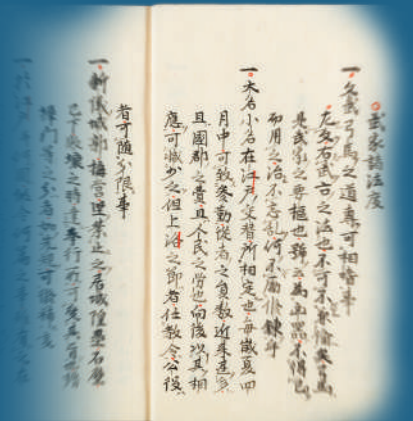 武家諸法度
一文武弓馬之道專可相嗜事
左文右武古之法也不可不兼備矣弓馬
是武家之要樞也號兵為凶器不得已
而用之治不忘乱何不励修錬乎
一大名小名在江戸交替所相定也毎歳夏四
月中可致参勤従者之員數近来甚多
且國郡之費且人民之労也向後以其相
應可減少之但上洛之節者任教令公役
者可随分限事
一新儀城郭構営堅禁止之居城隍塁石壁
已下敗壊之時達奉行所可受其旨也櫓
塀門等之分者如先規可修補事